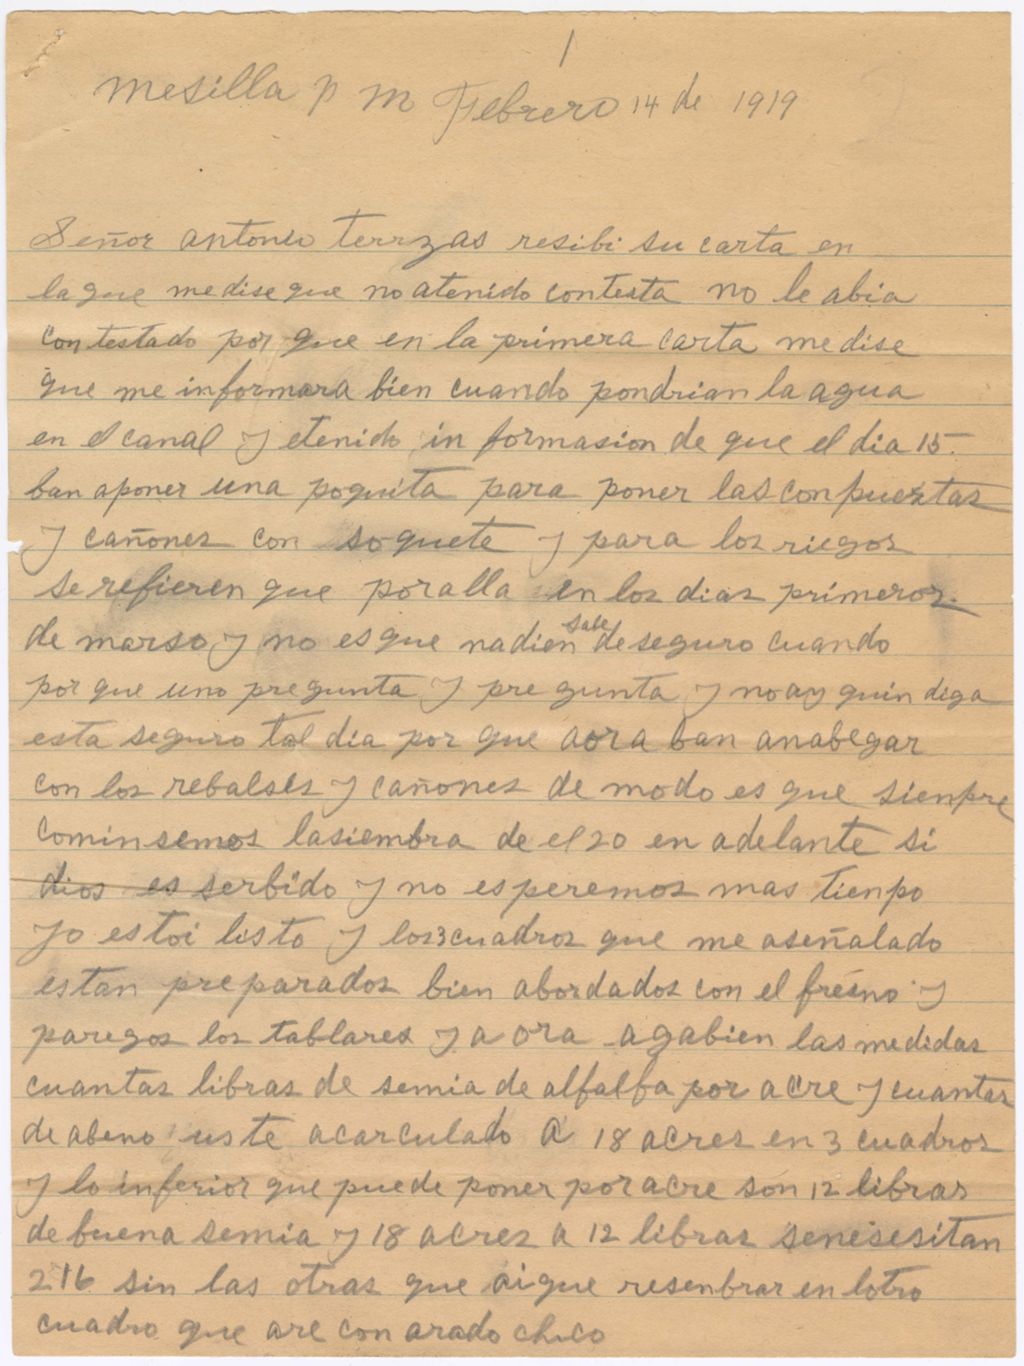 1
Mesilla N M Febrero 14 de 1919
Señor antonio terrzas resibi su carta en
la que me dise que no atenido contesta no le abia
contestado por que en la primera carta me dise
que me informara bien cuando pondrian la agua
en el canal y etenido informasion de que el dia 15.
ban aponer una poquita para poner las conpuertas
y cañones con soquete y para los riegos
se refieren que poralla en los dias primeros
de marso y no es que nadien sabe de seguro cuando
por que uno pregunta y pregunta y no ay quin diga
esta seguro tal dia por que aora ban anabegar
con los rebalses y cañones de modo es que sienpre
cominsemos lasiembra de el 20 en adelante si
dios es serbido y no esperemos mas tienpo
yo estoi listo y los 3 cuadros que me aseñalado
estan preparados bien abordados con el fresno y
paregos los tablares y aora agabien las medidas
cuantas libras de semia de alfalfa por acre y cuantas
de abeno uste acarculado a 18 acres en 3 cuadros
y lo inferior que puede poner por acre son 12 libras
de buena semia y 18 acres a 12 libras senesesitan
216 sin las otras que aigue resenbrar en lotro
cuadro que are con arado chico